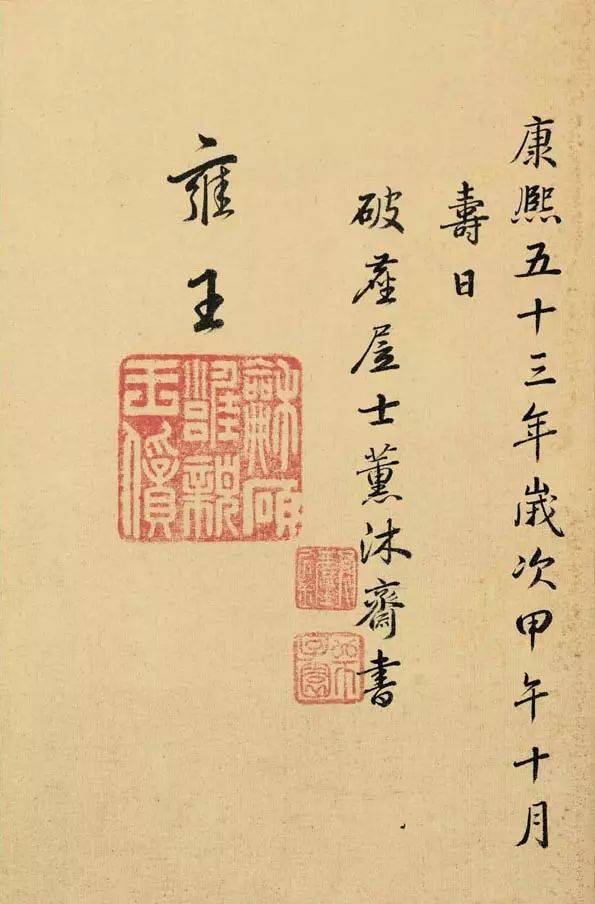 康熙五十三年歲次甲午十月
壽日
破塵居士薰沐齋書
雍王